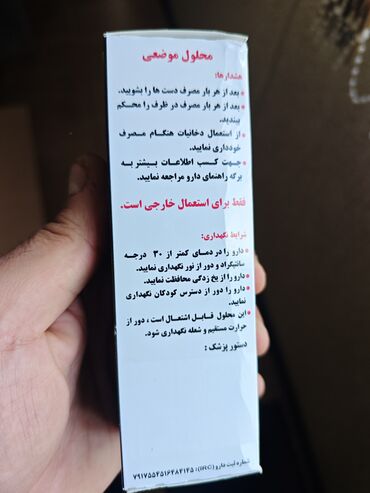 محلول موضعی
هشدارها:
● بعد از هر بار مصرف دست ها را بشویید.
● بعد از هر بار مصرف در ظرف را محکم
ببندید.
● از استعمال دخانیات هنگام مصرف
خودداری نمایید.
● جهت کسب اطلاعات بیشتر به
برگه راهنمای دارو مراجعه نمایید.
فقط برای استعمال خارجی است.
شرایط نگهداری:
● دارو را در دمای کمتر از ۳۰ درجه
سانتیگراد و دور از نور نگهداری نمایید.
● دارو را از یخ زدگی محافظت نمایید.
● دارو را دور از دسترس کودکان نگهداری
نمایید.
● این محلول قابل اشتعال است ، دور از
حرارت مستقیم و شعله نگهداری شود.
دستور پزشک :
شماره ثبت دارو (IRC): ۷۹۱۷۵۵۴۵۱۶۴۸۴۱۴۵